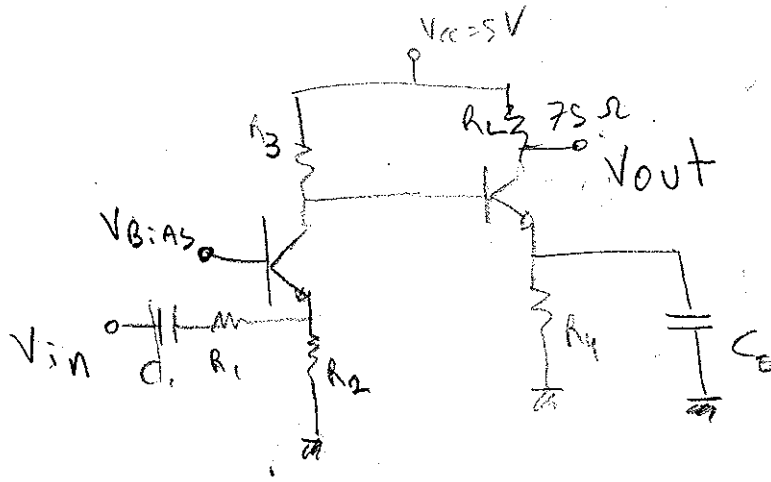 Vcc=5V
R3
RL 75 Ω
Vout
VBiAS
Vin
C1
R1
R2
R4
CE